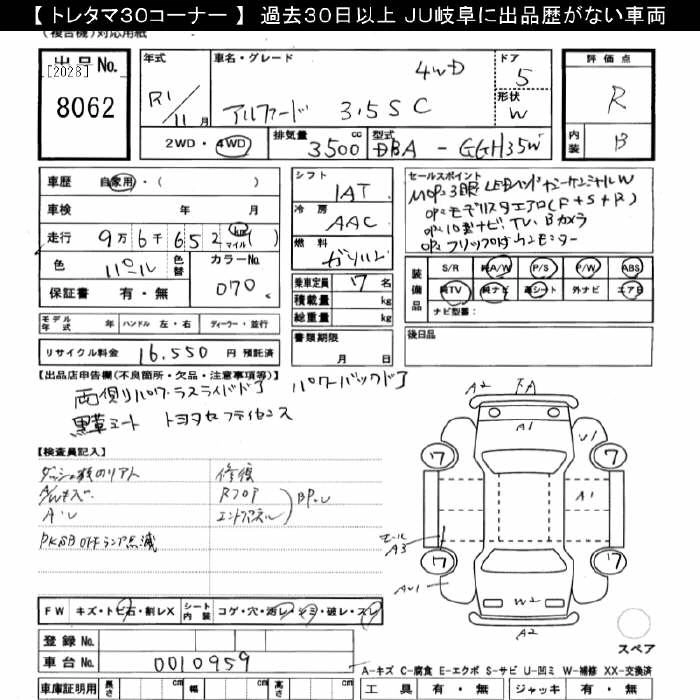 【 トレタマ30コーナー 】 過去30日以上 JU岐阜に出品歴がない車両
(複合機)対応用紙
出品No.
[2028]
8062
年式
R1/11月
車名・グレード
4WD
アルファード 3.5 S C
ドア
5
形状
W
評価点
R
内装
B
2WD・4WD
排気量
3500 cc
型式
DBA - GGH35W
車歴 自家用・( )
車検 年 月
走行 9万6千652 km マイル ( )
色 パール 色替 カラーNo. 070
保証書 有・無
シフト
IAT
冷房
AAC
燃料
ガソリン
乗車定員 7名
積載量 kg
総重量 kg
書類期限
月 日
セールスポイント
OP.モデリスタエアロ(F+S+R)
OP.10型ナビ TV. Bカメラ
OP.フリップダウンモニター
装備品
S/R 純A/W P/S P/W ABS
純TV 純ナビ 革シート 外ナビ エアB
ナビ型番:
後日品
モデル年式 年 ハンドル 左・右 ディーラー・並行
リサイクル料金 16,550 円 預託済
【出品店申告欄(不良箇所・欠品・注意事項等)】
両側パワースライドドア パワーバックドア
黒革シート トヨタセーフティセンス
【検査員記入】
修復
A・U
Rフロア
エンドパネル
BP.U
PKSB OFFランプ点滅
A2 FA
A1
U1
7
7
A1
モール
A3
7
7
AU1
W2
A2
スペア
FW キズ・トビ石・割レX シート内装 コゲ・穴・汚レ・シミ・破レ・スレ
登録No.
車台No. 0010959
A-キズ C-腐食 E-エクボ S-サビ U-凹ミ W-補修 XX-交換済
車庫証明用 長さ cm 幅 cm 高さ cm
工具 有・無 ジャッキ 有・無